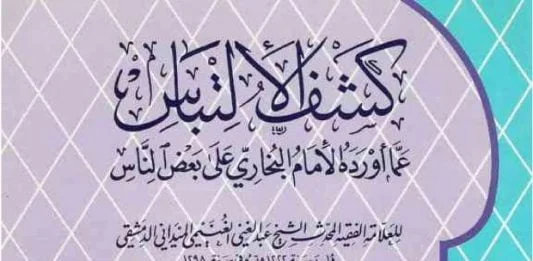 كشف الالتباس
عمّا أورده الإمام البخاري على بعض الناس
للعلامة الفقيه المحدث الشيخ عبد الغني الغنيمي الميداني الدمشقي
ولد سنة ١٢٢٢ وتوفي سنة ١٢٩٨